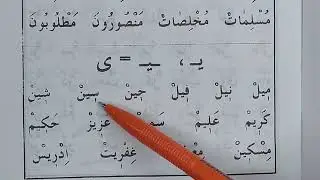 مُسْلِمَاتْ مُخْلِصَاتْ مَنْصُورُونَ مَطْلُوبُونَ
یـ ، ـیـ = ی
مِيلْ نِيلْ فِيلْ جِينْ سِينْ شِينْ
كَرِيمْ عَلِيمْ عَزِيزْ حَكِيمْ
مِسْكِينْ عِفْرِيتْ اِدْرِيسْ